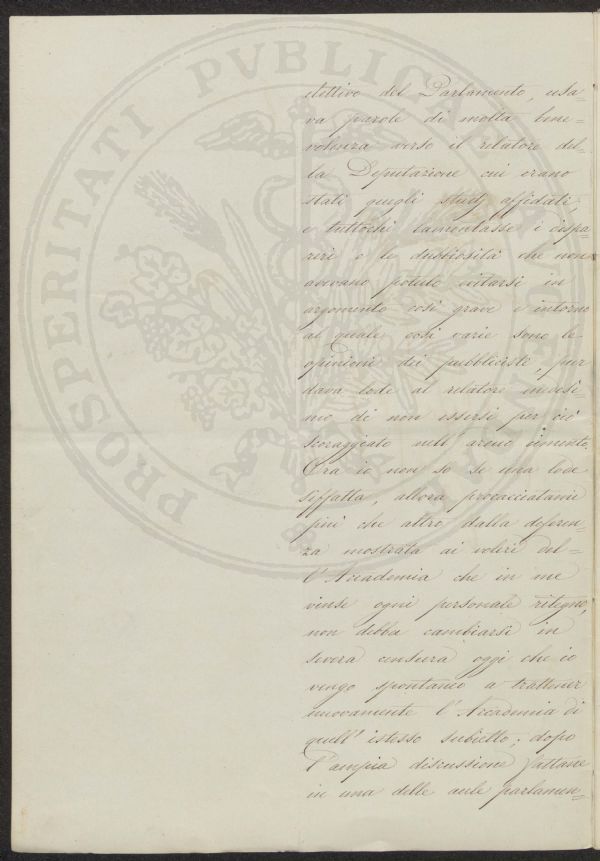 elettivo del Parlamento, usa=
va parole di molta bene=
volenza verso il relatore del=
la Deputazione cui erano
stati quegli studj affidati:
e tuttochè lamentasse i dispa=
riri e le dubbiosità che non
avevano potuto evitarsi in
argomento così grave e intorno
al quale così varie sono le
opinioni dei pubblicisti, pur
dava lode al relatore medesi=
mo di non essersi per ciò
scoraggiato nell'arduo cimento.
Ora io non so se una lode
siffatta, allora procacciatami
più che altro dalla deferen=
za mostrata ai voleri del=
l'Accademia che in me
vinse ogni personale ritegno,
non debba cambiarsi in
severa censura oggi che io
vengo spontaneo a trattener
nuovamente l'Accademia di
quell'istesso subietto; dopo
l'ampia discussione fattane
in una delle aule parlamen=
PROSPERITATI PVBLICAE AVGENDAE